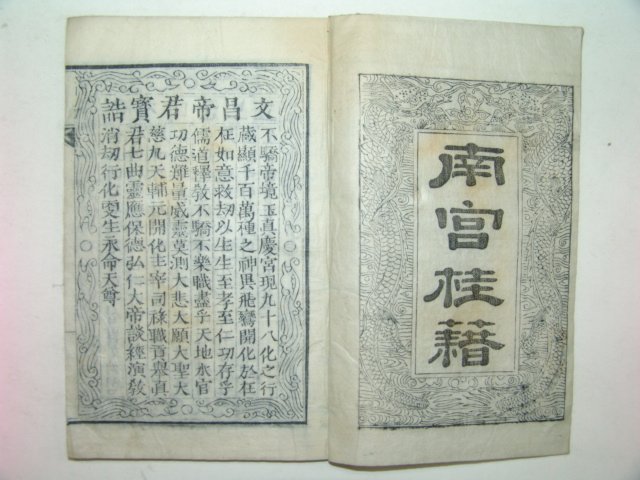 南宮桂籍
文昌帝君寳誥
不驕帝境玉真慶宮現九十八化之行
藏顯千百萬種之神異飛鸞開化於在
在如意救劫以生生至孝至仁功存乎
儒道釋敎不驕不樂職盡乎天地水官
功德難量威靈莫測大悲大願大聖大
慈九天輔元開化主宰司祿職貢舉真
君七曲靈應保德弘仁大帝談經演敎
消劫行化更生永命天尊